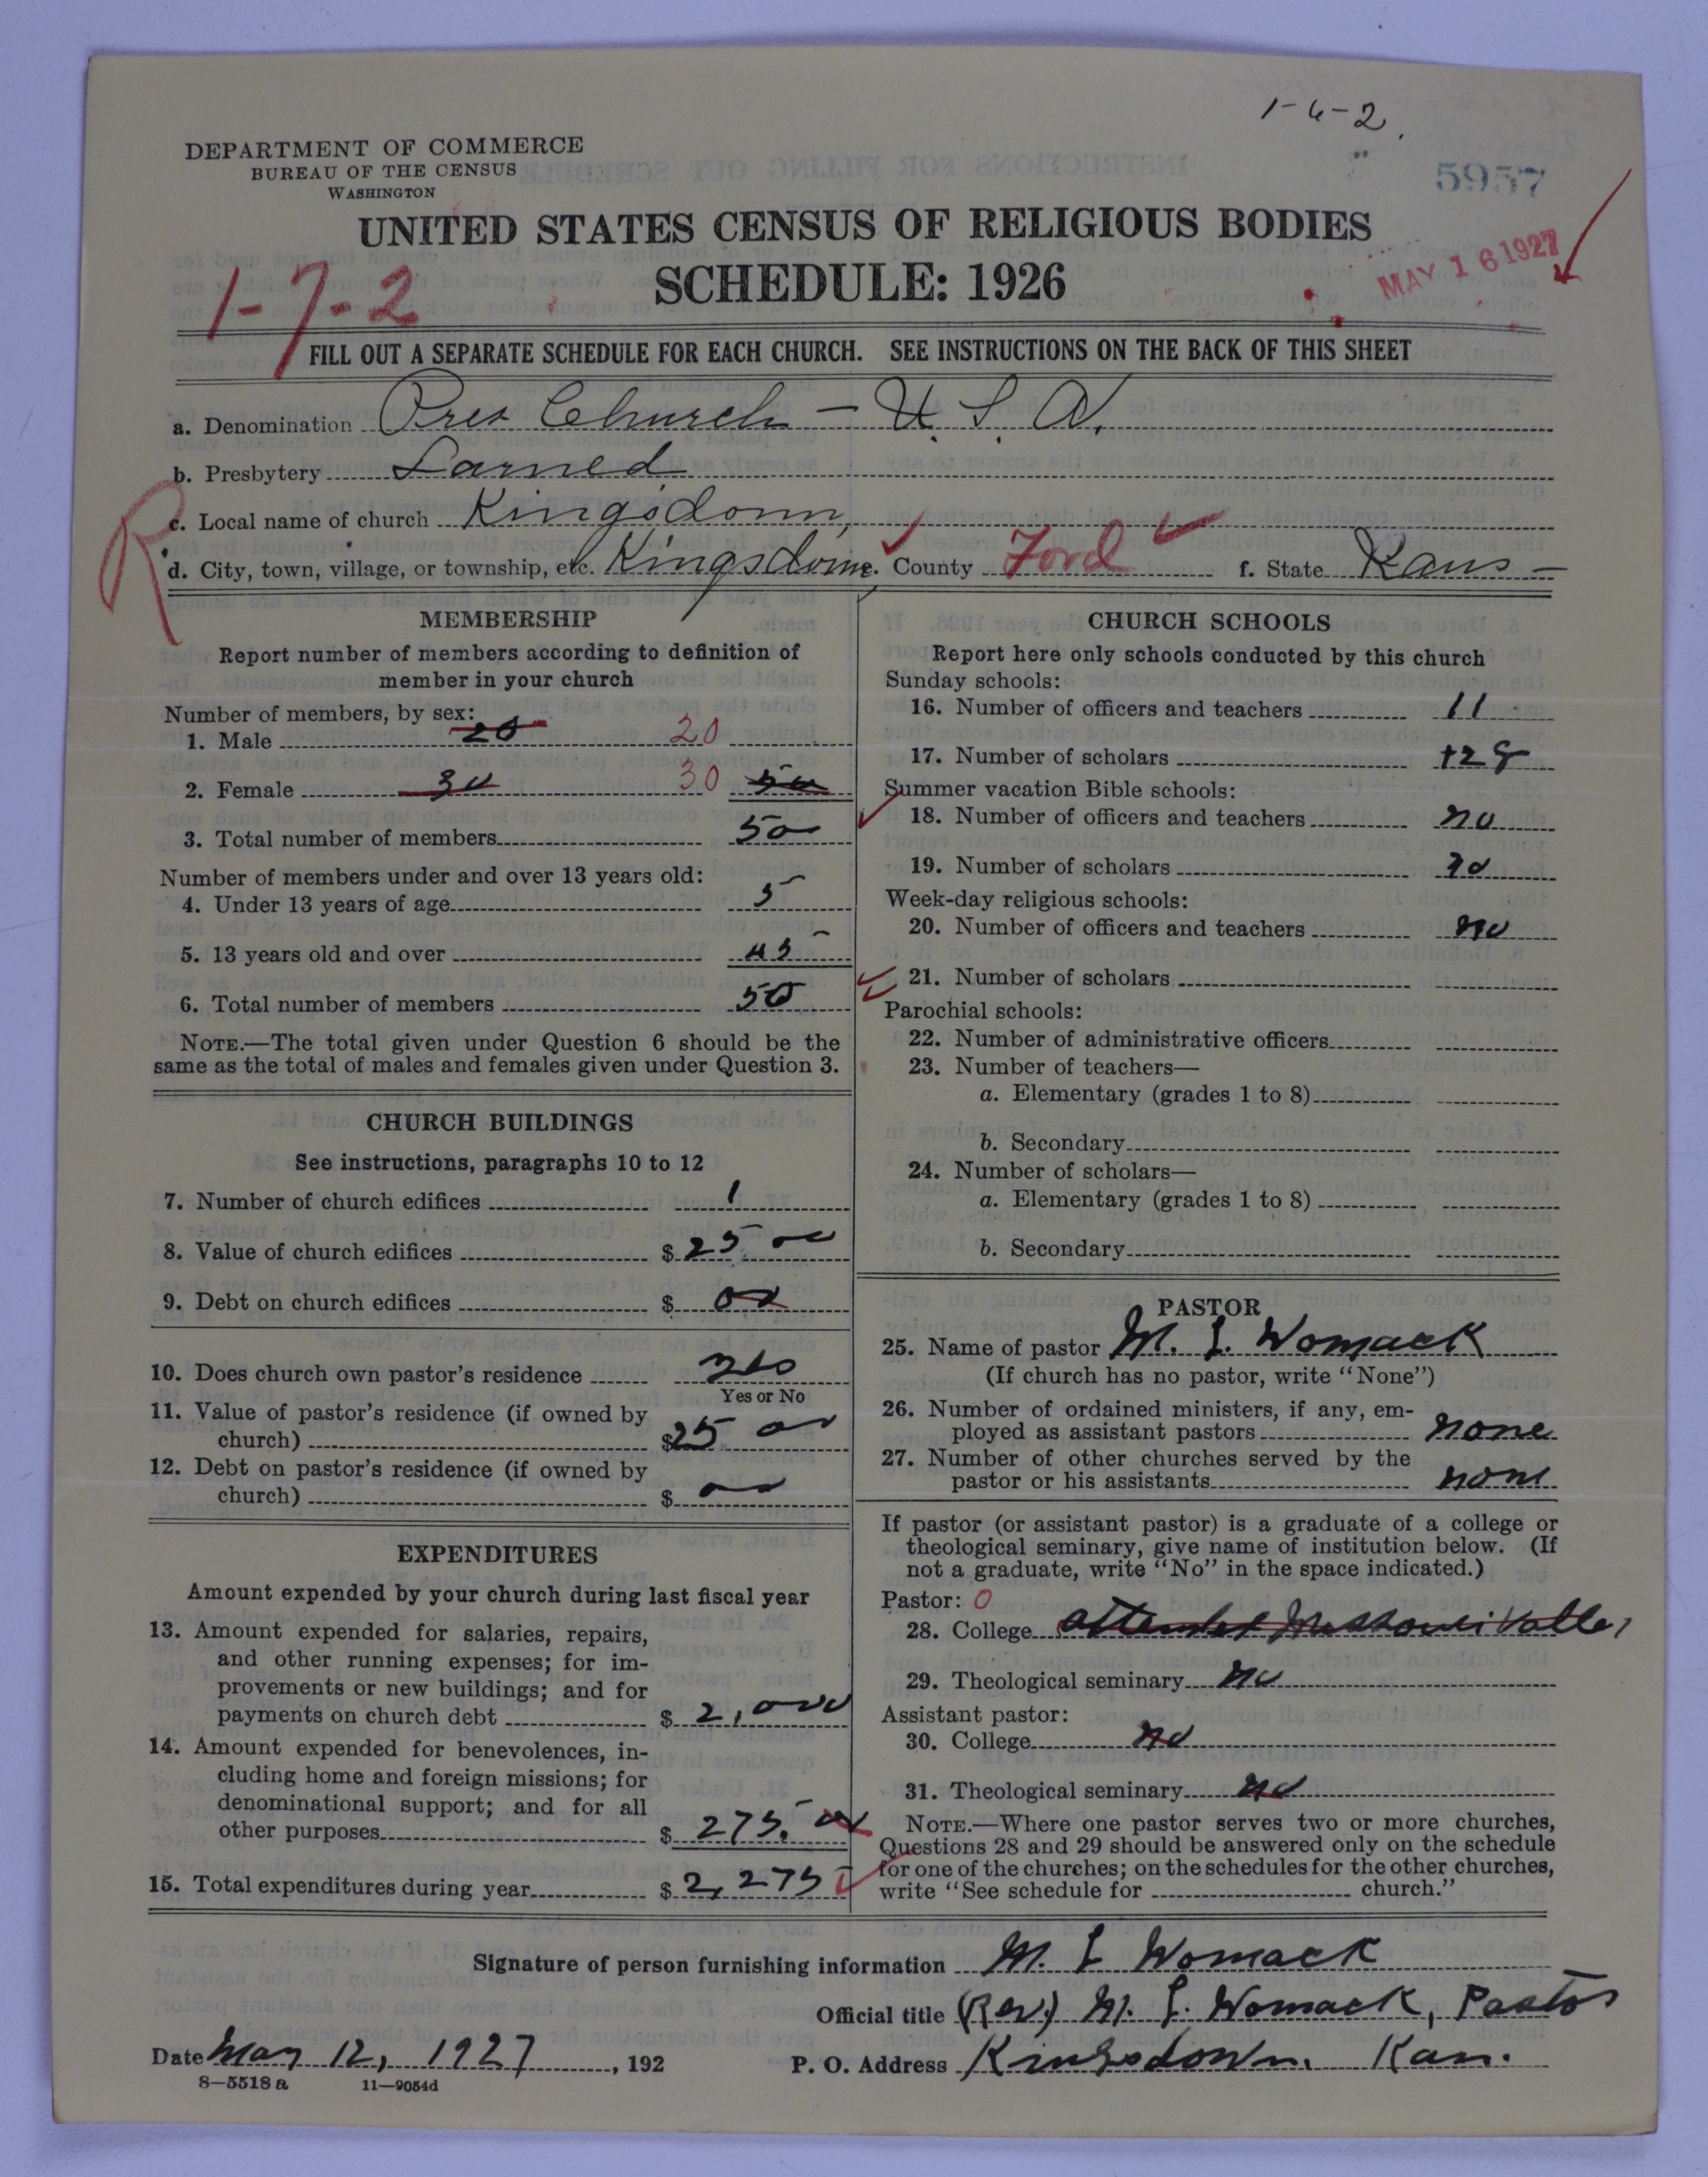 1-6-2
DEPARTMENT OF COMMERCE
BUREAU OF THE CENSUS
WASHINGTON
5957
UNITED STATES CENSUS OF RELIGIOUS BODIES
SCHEDULE: 1926
MAY 16 1927
1-7-2
FILL OUT A SEPARATE SCHEDULE FOR EACH CHURCH. SEE INSTRUCTIONS ON THE BACK OF THIS SHEET
a. Denomination Pres Church - U. S. A.
b. Presbytery Larned
R
c. Local name of church Kingsdown,
d. City, town, village, or township, etc. Kingsdown e. County Ford f. State Kans-
MEMBERSHIP
Report number of members according to definition of
member in your church
Number of members, by sex:
1. Male 20 20
2. Female 30 30 50
3. Total number of members 50
Number of members under and over 13 years old:
4. Under 13 years of age 5
5. 13 years old and over 45
6. Total number of members 50
NOTE.—The total given under Question 6 should be the
same as the total of males and females given under Question 3.
CHURCH BUILDINGS
See instructions, paragraphs 10 to 12
7. Number of church edifices 1
8. Value of church edifices $ 25 00
9. Debt on church edifices $ 00
10. Does church own pastor's residence
Yes or No
11. Value of pastor's residence (if owned by
church) $ 25 00
12. Debt on pastor's residence (if owned by
church) $ 00
EXPENDITURES
Amount expended by your church during last fiscal year
13. Amount expended for salaries, repairs,
and other running expenses; for im-
provements or new buildings; and for
payments on church debt $ 2,000
14. Amount expended for benevolences, in-
cluding home and foreign missions; for
denominational support; and for all
other purposes $ 275.00
15. Total expenditures during year $ 2,275
CHURCH SCHOOLS
Report here only schools conducted by this church
Sunday schools:
16. Number of officers and teachers 11
17. Number of scholars
Summer vacation Bible schools:
18. Number of officers and teachers no
19. Number of scholars no
Week-day religious schools:
20. Number of officers and teachers no
21. Number of scholars
Parochial schools:
22. Number of administrative officers
23. Number of teachers—
a. Elementary (grades 1 to 8)
b. Secondary
24. Number of scholars—
a. Elementary (grades 1 to 8)
b. Secondary
PASTOR
25. Name of pastor M. L. Womack
(If church has no pastor, write "None")
26. Number of ordained ministers, if any, em-
ployed as assistant pastors none
27. Number of other churches served by the
pastor or his assistants none
If pastor (or assistant pastor) is a graduate of a college or
theological seminary, give name of institution below. (If
not a graduate, write "No" in the space indicated.)
Pastor: 0
28. College attended Missouri Valley
29. Theological seminary no
Assistant pastor:
30. College no
31. Theological seminary no
NOTE.—Where one pastor serves two or more churches,
Questions 28 and 29 should be answered only on the schedule
for one of the churches; on the schedules for the other churches,
write "See schedule for church."
Signature of person furnishing information M. L Womack
Official title (Rev.) M. L. Womack, Pastor
Date May 12, 1927, 192 P. O. Address Kingsdown, Kan.
8—5518 a 11—9054d